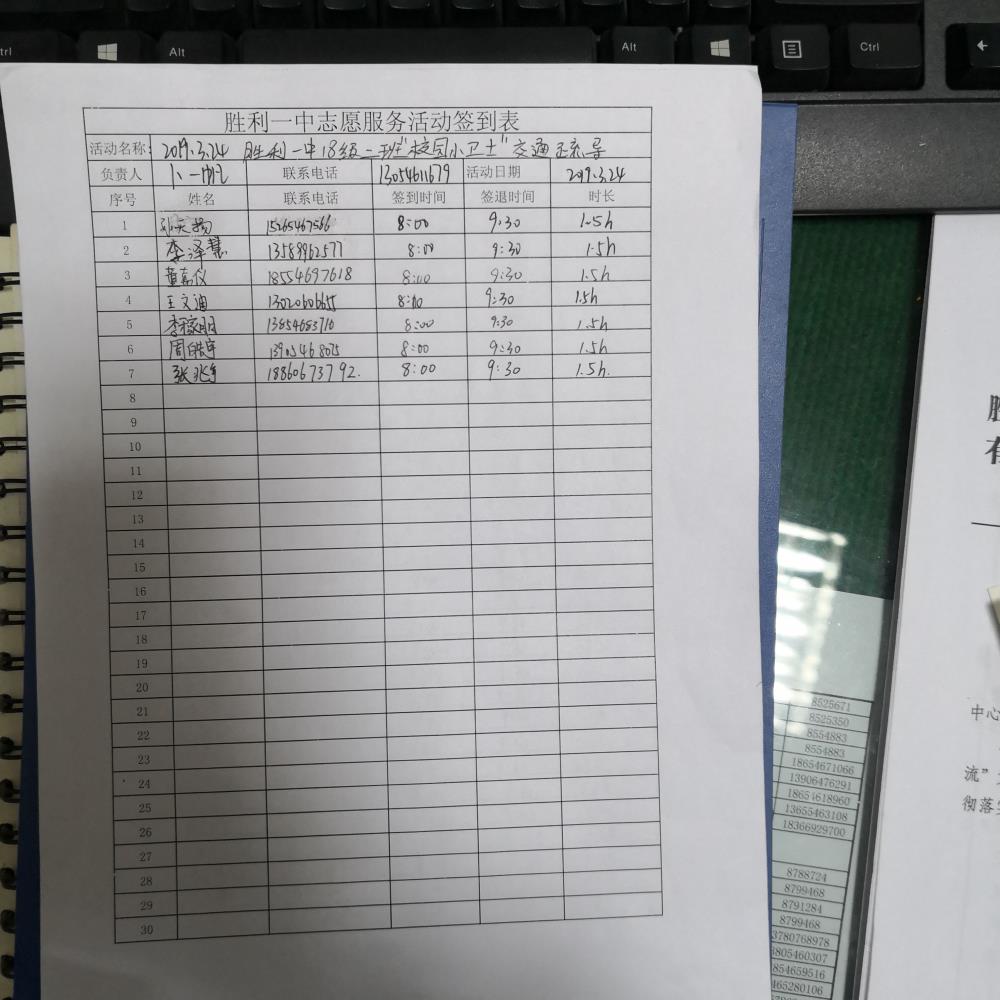 trl
Alt
Alt
Ctrl
胜利一中志愿服务活动签到表
活动名称: 2019.3.24 胜利一中18级二班"校园小卫士"交通疏导
负责人 卜一帆 联系电话 13054611679 活动日期 2019.3.24
序号 姓名 联系电话 签到时间 签退时间 时长
1 孙天扬 15265467566 8:00 9:30 1.5h
2 李泽慧 13589962577 8:00 9:30 1.5h
3 董嘉仪 18554697618 8:00 9:30 1.5h
4 王文迪 13020606655 8:00 9:30 1.5h
5 13854683710 8:00 9:30 1.5h
6 周皓宇 13905468075 8:00 9:30 1.5h
7 张兆宇 18860673792. 8:00 9:30 1.5h.
8
9
10
11
12
13
14
15
16
17
18
19
20
21
22
23
24
25
26
27
28
29
30
8525671
8525350
8554883
8554883
18654671066
13906476291
18654618960
13655463108
18366929700
8788724
8799468
8791284
8799468
3780768978
805460307
854659516
465280106
胜
有
中心
流”
彻落